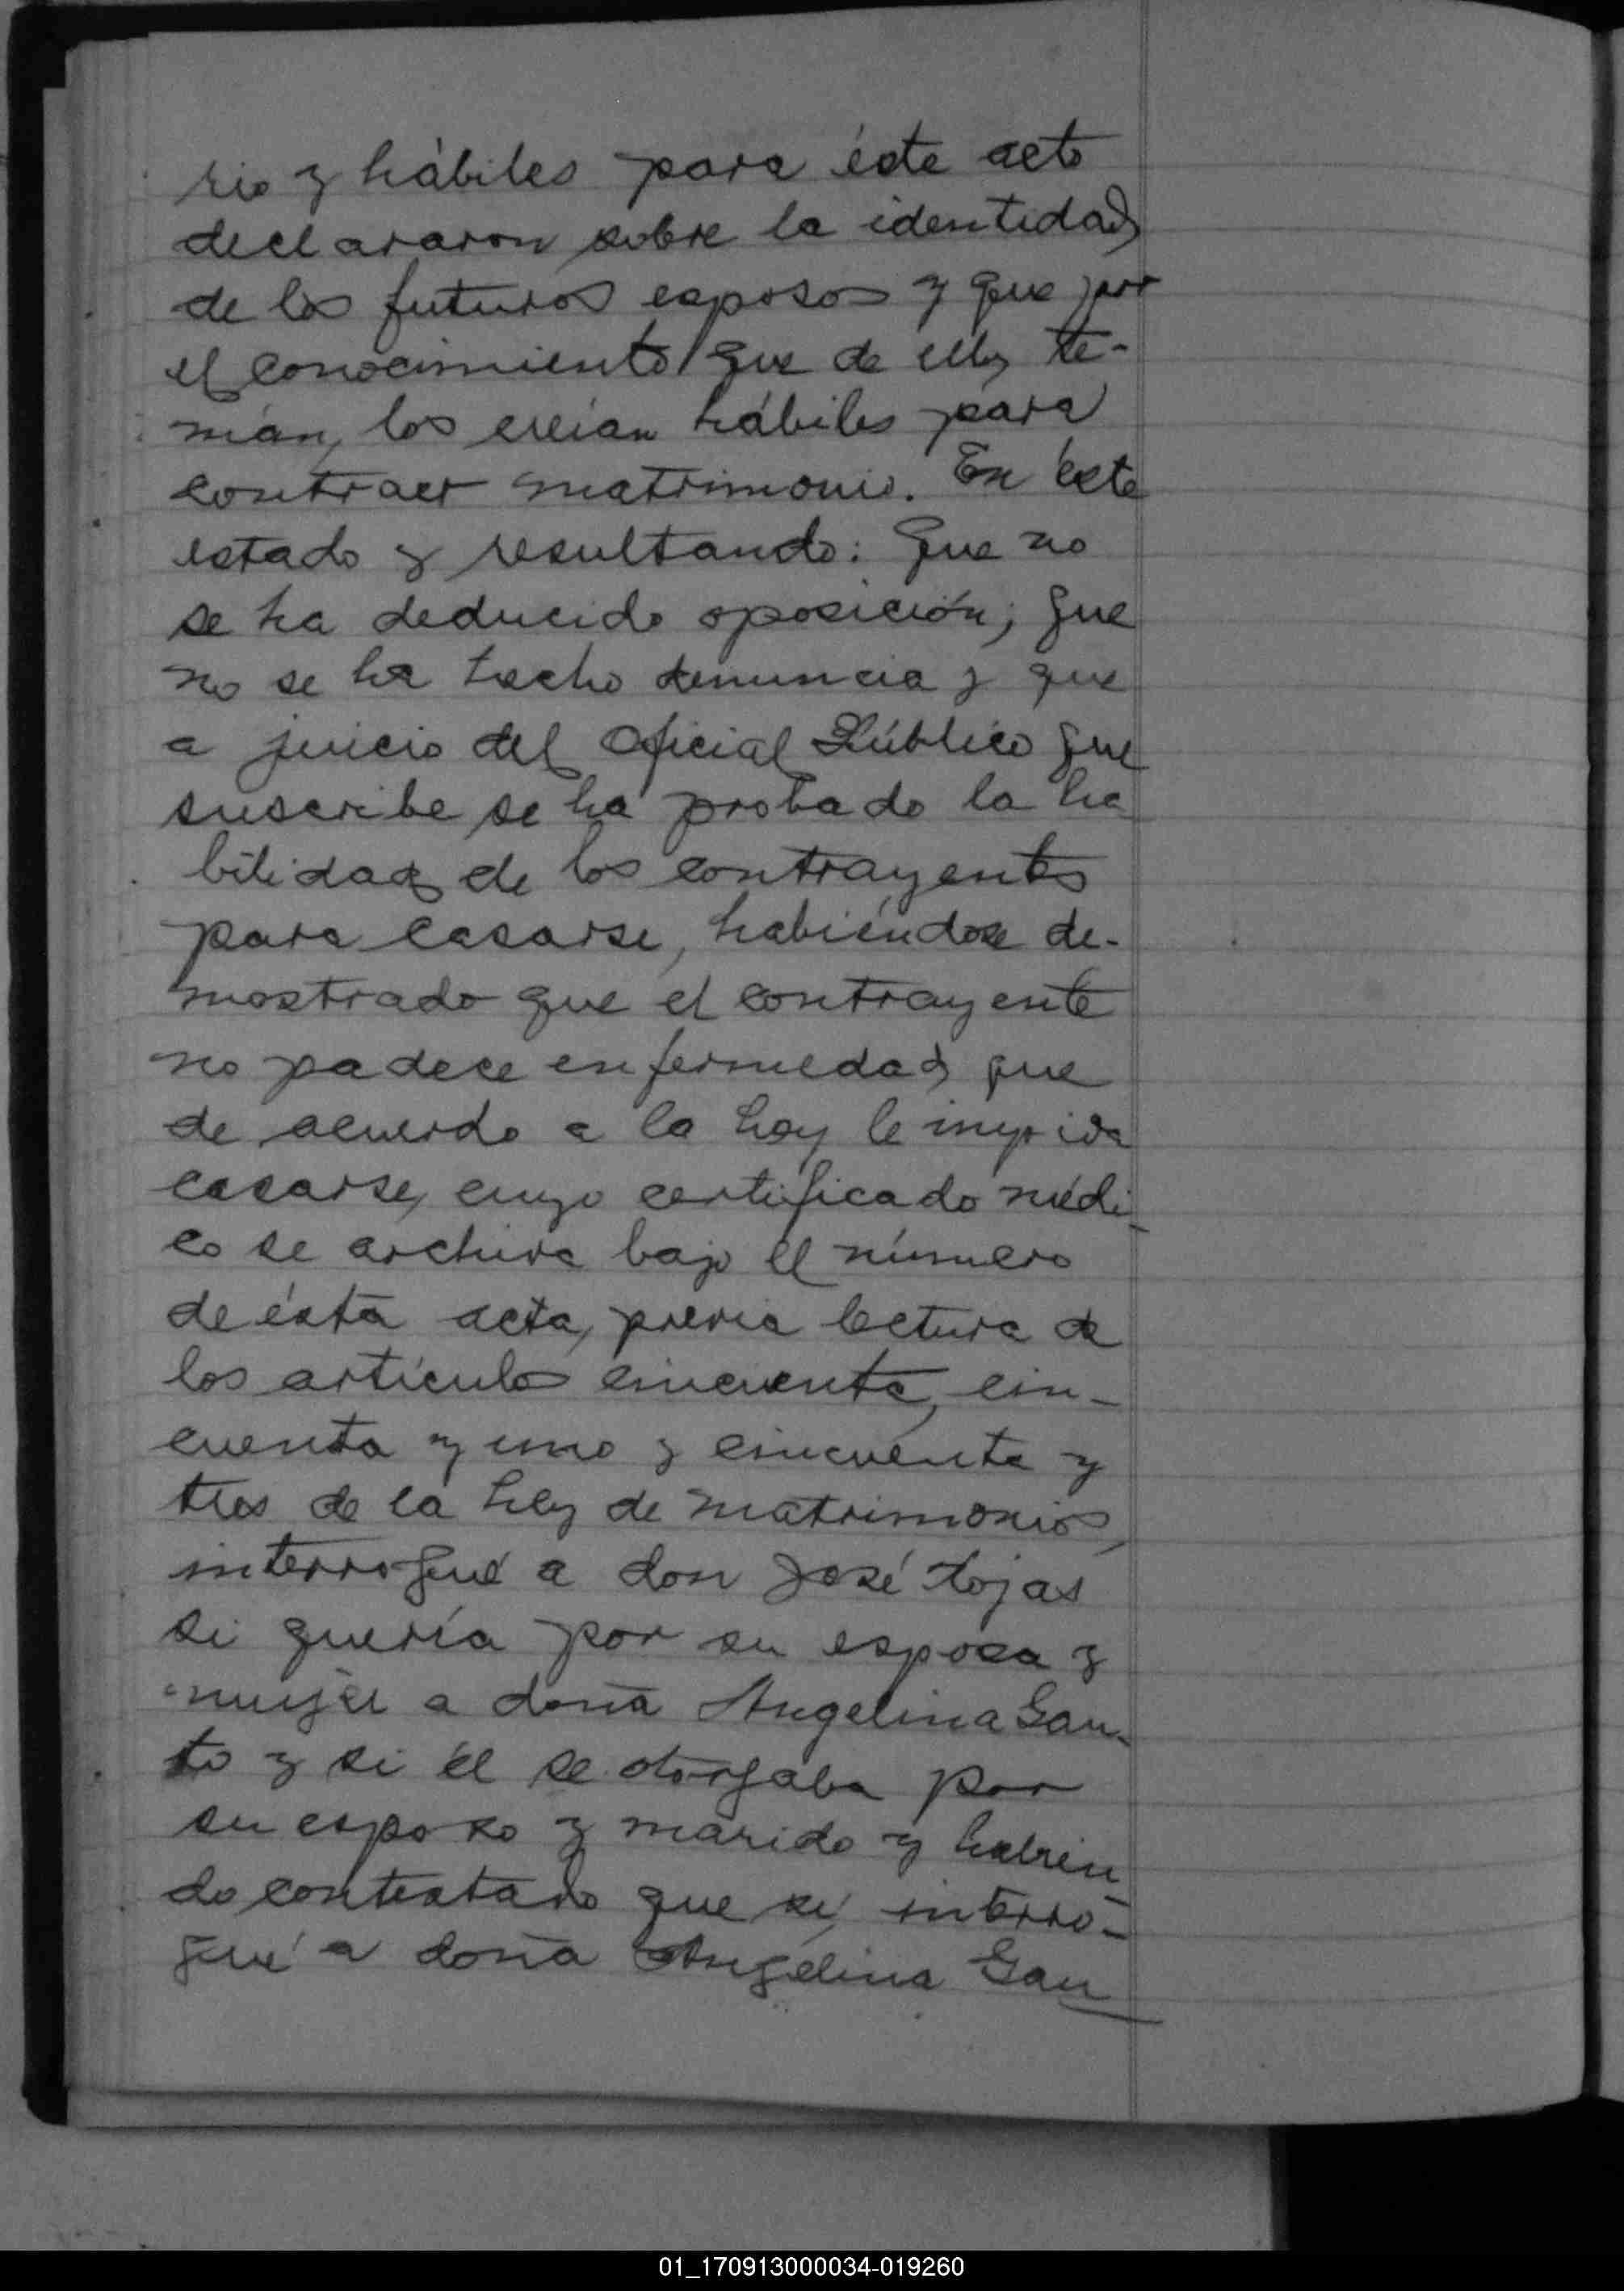 rio y hábiles para éste acto
declararon sobre la identidad
de los futuros esposos y que por
el conocimiento que de ellos te-
nían, los creían hábiles para
contraer matrimonio. En éste
estado y resultando: Que no
se ha deducido oposición; que
no se ha hecho denuncia y que
a juicio del Oficial Público que
suscribe se ha probado la ha
bilidad de los contrayentes
para casarse, habiéndose de-
mostrado que el contrayente
no padece enfermedad que
de acuerdo a la Ley le impida
casarse, cuyo certificado médi-
co se archiva bajo el número
de ésta acta, previa lectura de
los artículos cincuenta, cin-
cuenta y uno y cincuenta y
tres de la Ley de Matrimonio,
interrogué a don José Lojas
si quería por su esposa y
mujer a doña Angelina Gau-
to y si él se otorgaba por
su esposo y marido y habien-
do contestado que sí, interro-
gué a doña Angelina Gau
01_170913000034-019260